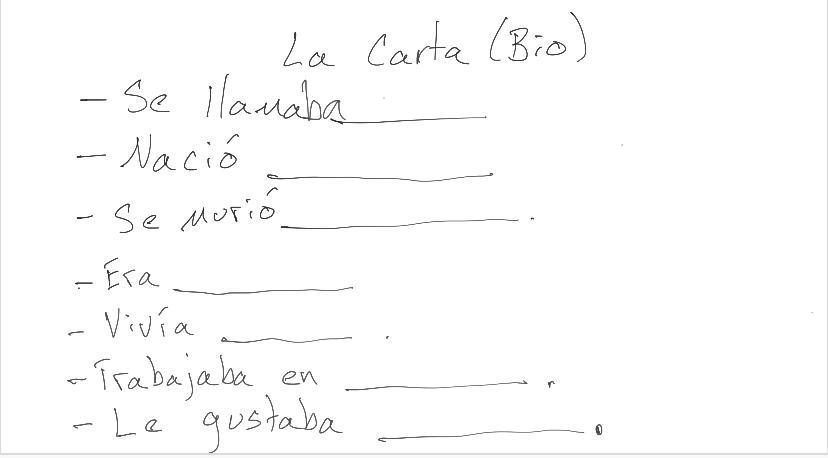 La Carta (Bio)
- Se llamaba ________
- Nació ________
- Se murió ________.
- Era ________
- Vivía ________.
- Trabajaba en ________.
- Le gustaba ________.